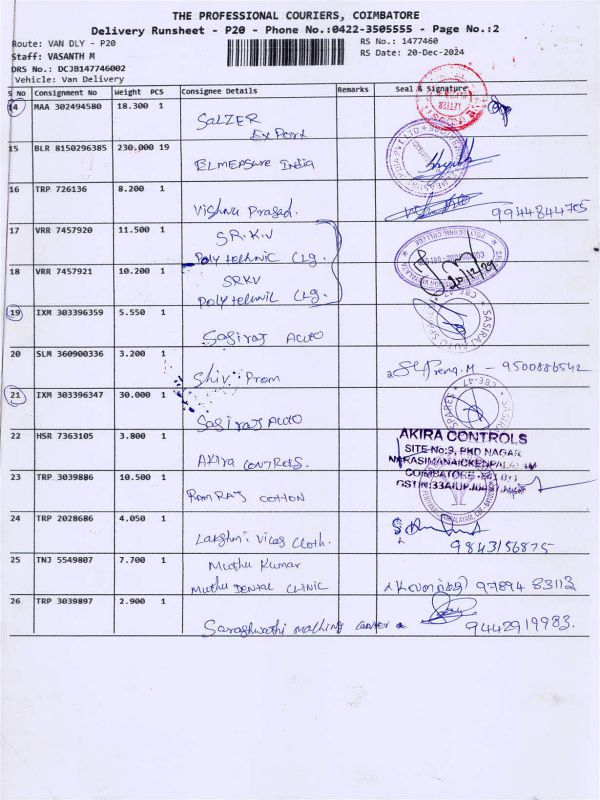 THE PROFESSIONAL COURIERS, COIMBATORE
Delivery Runsheet - P20 - Phone No.:0422-3505555 - Page No.:2
Route: VAN DLY - P20 RS No.: 1477460
Staff: VASANTH M RS Date: 20-Dec-2024
DRS No.: DCJB147746002
Vehicle: Van Delivery
S No Consignment No Weight PCS Consignee Details Remarks Seal & Signature
14 MAA 302494580 18.300 1
SALZER
Export
15 BLR 8150296385 230.000 19
ELMEASURE India
16 TRP 726136 8.200 1
Vishnu Prasad. 9944844705
17 VRR 7457920 11.500 1 S.R.K.V
Polytechnic Clg.
18 VRR 7457921 10.200 1 SRKV
Polytechnic Clg.
20/12/24
19 IXM 303396359 5.550 1
Sasiraj Auto
20 SLM 360900336 3.200 1
Shiv. Prom 9500886542
21 IXM 303396347 30.000 1
Sasiraj Auto
CBE-47
22 HSR 7363105 3.800 1
Akira Controls.
AKIRA CONTROLS
SITE-No:9, PKD NAGAR
NARASIMANAICKENPALAYAM
COIMBATORE
23 TRP 3039886 10.500 1
Ramraj Cotton
24 TRP 2028686 4.050 1
Lakshmi Vilas Cloth. 9843156875
25 TNJ 5549807 7.700 1 Muthu Kumar
Muthu Dental Clinic 97894 83112
26 TRP 3039897 2.900 1
Saraghwathi maching center 9442919983.